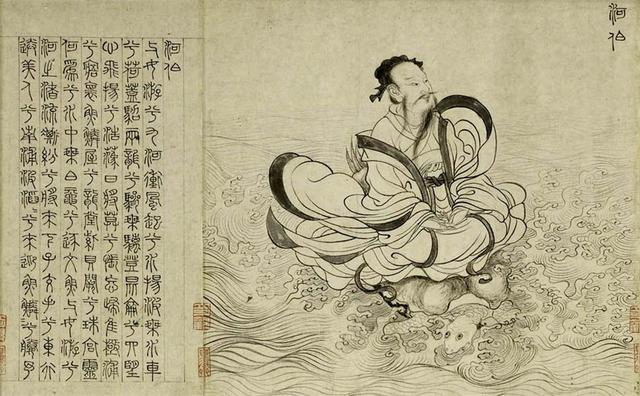 河伯
河伯
與女游兮九河衝風起兮水揚波乘水車
兮荷蓋駕兩龍兮驂乘螭登昆侖兮四望
心飛揚兮浩蕩日將莫兮悵忘歸惟極浦
兮寤懷魚鱗屋兮龍堂紫貝闕兮珠宮靈
何爲兮水中乘白黿兮逐文魚與女游兮
河之渚流澌紛兮將來下子交手兮東行
送美人兮南浦波滔兮來迎魚鱗兮媵予